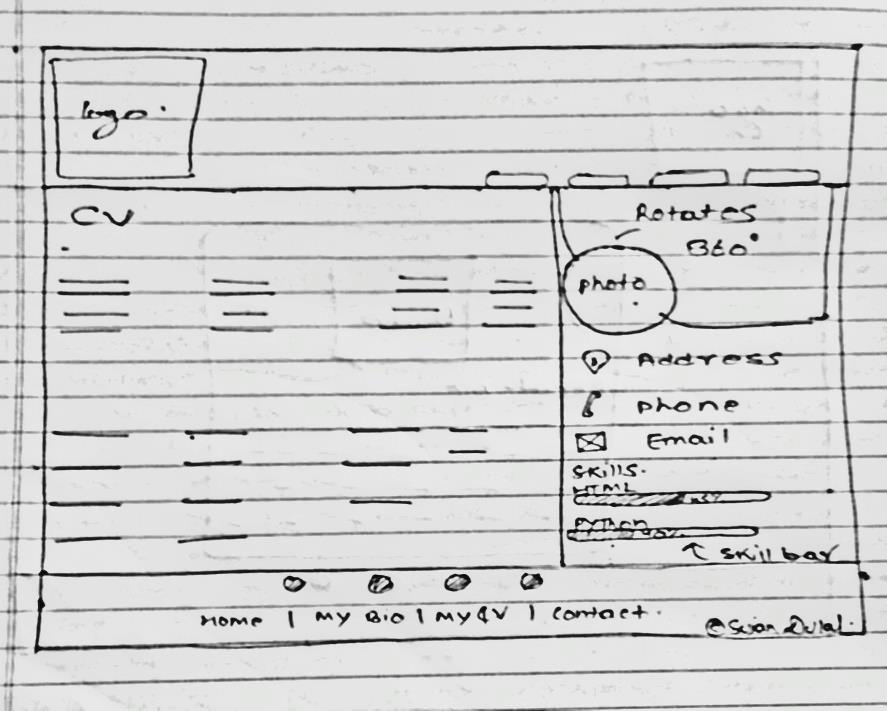 logo.
CV
Rotates
360°
photo
Address
phone
Email
Skills.
HTML
PYTHON
skill bar
Home | My Bio | My CV | Contact.